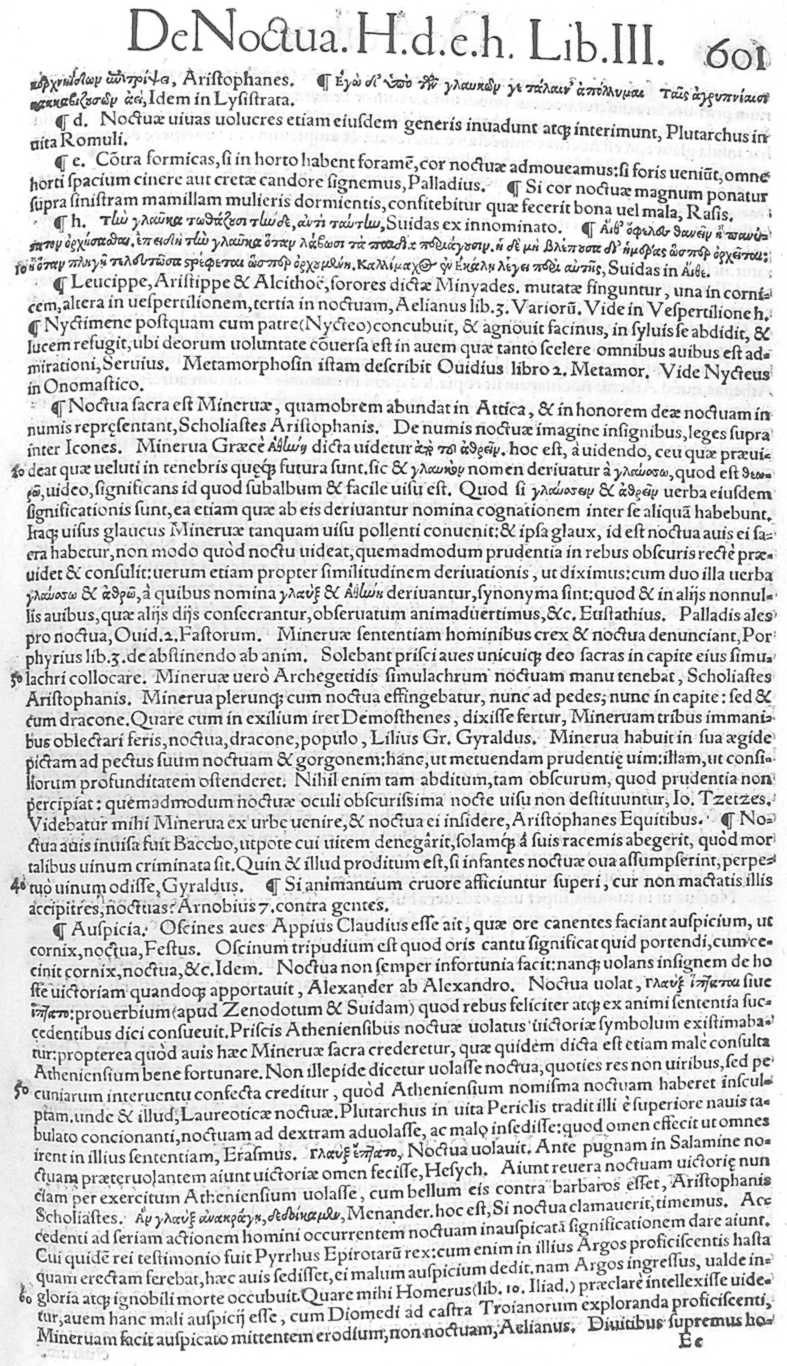 De Noctua. H.d.e.h. Lib. III. 601
ὀρχηϊδίων ἐπιτρίψει, Aristophanes. ¶ Ἐγὼ δ' ὑπὸ τῶν γλαυκῶν γε τάλαιν' ἀπόλλυμαι Ταῖς ἀγρυπνίαισι
κικκαβιζουσῶν ἀεί, Idem in Lysistrata.
¶ d. Noctuæ uiuas uolucres etiam eiusdem generis inuadunt atq; interimunt, Plutarchus in
uita Romuli.
¶ e. Cõtra formicas, si in horto habent foramẽ, cor noctuæ admoueamus: si foris ueniũt, omne
horti spacium cinere aut cretæ candore signemus, Palladius. ¶ Si cor noctuæ magnum ponatur
supra sinistram mamillam mulieris dormientis, confitebitur quæ fecerit bona uel mala, Rasis.
¶ h. τὼ γλαῦκα τωθάζουσι τὼ δὲ, ἀντὶ ταύτω, Suidas ex innominato. ¶ Αἴθ' ὄφελον θανεῖν ἢ
ὀρχήσασθαι. ἐπειδὴ τὼ γλαῦκα ὅταν λάβωσι τὰ παιδία περιάγουσιν. ἡ δὲ μὴ βλέπουσα δι' ἡμέρας ὥσπερ ὀρχεῖται:
10 ἢ ὅταν πληγῇ τελευτῶσα στρέφεται ὥσπερ ὀρχουμένη. Καλλίμαχος ἐν Ἑκάλῃ λέγει περὶ αὐτῆς, Suidas in Αἴθε.
¶ Leucippe, Aristippe & Alcithoë, sorores dictæ Minyades. mutatæ finguntur, una in corni-
cem, altera in uespertilionem, tertia in noctuam, Aelianus lib. 3. Variorũ. Vide in Vespertilione h.
¶ Nyctimene postquam cum patre (Nycteo) concubuit, & agnouit facinus, in syluis se abdidit, &
lucem refugit, ubi deorum uoluntate cõuersa est in auem quæ tanto scelere omnibus auibus est ad-
mirationi, Seruius. Metamorphosin istam describit Ouidius libro 2. Metamor. Vide Nycteus
in Onomastico.
¶ Noctua sacra est Mineruæ, quamobrem abundat in Attica, & in honorem deæ noctuam in
numis repręsentant, Scholiastes Aristophanis. De numis noctuæ imagine insignibus, leges supra
inter Icones. Minerua Græcè Ἀθήνη dicta uidetur ἀπὸ τοῦ ἀθρεῖν. hoc est, à uidendo, ceu quæ præui-
20 deat quæ ueluti in tenebris quęq; futura sunt. sic & γλαυκὸν nomen deriuatur à γλαύσσω, quod est θεω-
ρῶ, uideo, significans id quod subalbum & facile uisu est. Quod si γλαύσσειν & ἀθρεῖν uerba eiusdem
significationis sunt, ea etiam quæ ab eis deriuantur nomina cognationem inter se aliquã habebunt.
Itaq; uisus glaucus Mineruæ tanquam uisu pollenti conuenit: & ipsa glaux, id est noctua auis ei sa-
cra habetur, non modo quòd noctu uideat, quemadmodum prudentia in rebus obscuris rectè præ-
uidet & consulit: uerum etiam propter similitudinem deriuationis, ut diximus: cum duo illa uerba
γλαύσσω & ἀθρῶ, à quibus nomina γλαὺξ & Ἀθήνη deriuantur, synonyma sint: quod & in alijs nonnul-
lis auibus, quæ alijs dijs consecrantur, obseruatum animaduertimus, &c. Eustathius. Palladis ales
pro noctua, Ouid. 2. Fastorum. Mineruæ sententiam hominibus crex & noctua denunciant, Por
phyrius lib. 3. de abstinendo ab anim. Solebant prisci aues unicuiq; deo sacras in capite eius simu-
30 lachri collocare. Mineruæ uerò Archegetidis simulachrum noctuam manu tenebat, Scholiastes
Aristophanis. Minerua plerunq; cum noctua effingebatur, nunc ad pedes; nunc in capite: sed &
cum dracone. Quare cum in exilium iret Demosthenes, dixisse fertur, Mineruam tribus immani-
bus oblectari feris, noctua, dracone, populo, Lilius Gr. Gyraldus. Minerua habuit in sua ægide
pictam ad pectus suum noctuam & gorgonem: hanc, ut metuendam prudentię uim: illam, ut consi-
liorum profunditatem ostenderet. Nihil enim tam abditum, tam obscurum, quod prudentia non
percipiat: quemadmodum noctuæ oculi obscurissima nocte uisu non destituuntur, Io. Tzetzes.
Videbatur mihi Minerua ex urbe uenire, & noctua ei insidere, Aristophanes Equitibus. ¶ No-
ctua auis inuisa fuit Baccho, utpote cui uitem denegârit, solamq; à suis racemis abegerit, quòd mor
talibus uinum criminata sit. Quin & illud proditum est, si infantes noctuæ oua assumpserint, perpe-
40 tuò uinum odisse, Gyraldus. ¶ Si animantium cruore afficiuntur superi, cur non mactatis illis
accipitres, noctuas? Arnobius 7. contra gentes.
¶ Auspicia. Oscines aues Appius Claudius esse ait, quæ ore canentes faciant auspicium, ut
cornix, noctua, Festus. Oscinum tripudium est quod oris cantu significat quid portendi, cum ce-
cinit cornix, noctua, &c. Idem. Noctua non semper infortunia facit: nanq; uolans insignem de ho
ste uictoriam quandoq; apportauit, Alexander ab Alexandro. Noctua uolat, Γλαὺξ ἵπταται siue
ἵπτατο: prouerbium (apud Zenodotum & Suidam) quod rebus feliciter atq; ex animi sententia suc-
cedentibus dici consueuit. Priscis Atheniensibus noctuæ uolatus uictoriæ symbolum existimaba-
tur: propterea quòd auis hæc Mineruæ sacra crederetur, quæ quidem dicta est etiam malè consulta
Atheniensium bene fortunare. Non illepide dicetur uolasse noctua, quoties res non uiribus, sed pe
50 cuniarum interuentu confecta creditur, quòd Atheniensium nomisma noctuam haberet inscul-
ptam. unde & illud, Laureoticæ noctuæ. Plutarchus in uita Periclis tradit illi è superiore nauis ta-
bulato concionanti, noctuam ad dextram aduolasse, ac malo insedisse: quod omen effecit ut omnes
irent in illius sententiam, Erasmus. Γλαὺξ ἵπτατο, Noctua uolauit. Ante pugnam in Salamine no-
ctuam præteruolantem aiunt uictoriæ omen fecisse, Hesych. Aiunt reuera noctuam uictorię nun
ciam per exercitum Atheniensium uolasse, cum bellum eis contra barbaros esset, Aristophanis
Scholiastes. Ἂν γλαὺξ ἀνακράγῃ, δεδοίκαμεν, Menander. hoc est, Si noctua clamauerit, timemus. Ac
cedenti ad seriam actionem homini occurrentem noctuam inauspicatã significationem dare aiunt.
Cui quidẽ rei testimonio fuit Pyrrhus Epirotarũ rex: cum enim in illius Argos proficiscentis hasta
quam erectam ferebat, hæc auis sedisset, ei malum auspicium dedit. nam Argos ingressus, ualde in-
60 gloria atq; ignobili morte occubuit. Quare mihi Homerus (lib. 10. Iliad.) præclarè intellexisse uide-
tur, auem hanc mali auspicij esse, cum Diomedi ad castra Troianorum exploranda proficiscenti,
Mineruam facit auspicato mittentem erodium, non noctuam, Aelianus. Diuitibus supremus ho-
Ee